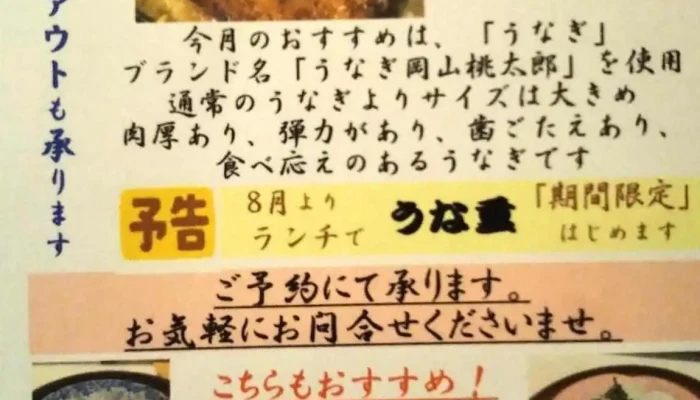 アウトも承ります
今月のおすすめは、「うなぎ」
ブランド名「うなぎ岡山桃太郎」を使用
通常のうなぎよりサイズは大きめ
肉厚あり、弾力があり、歯ごたえあり、
食べ応えのあるうなぎです
予告
8月より
ランチで
うな重
「期間限定」
はじめます
ご予約にて承ります。
お気軽にお問合せくださいませ。
こちらもおすすめ！